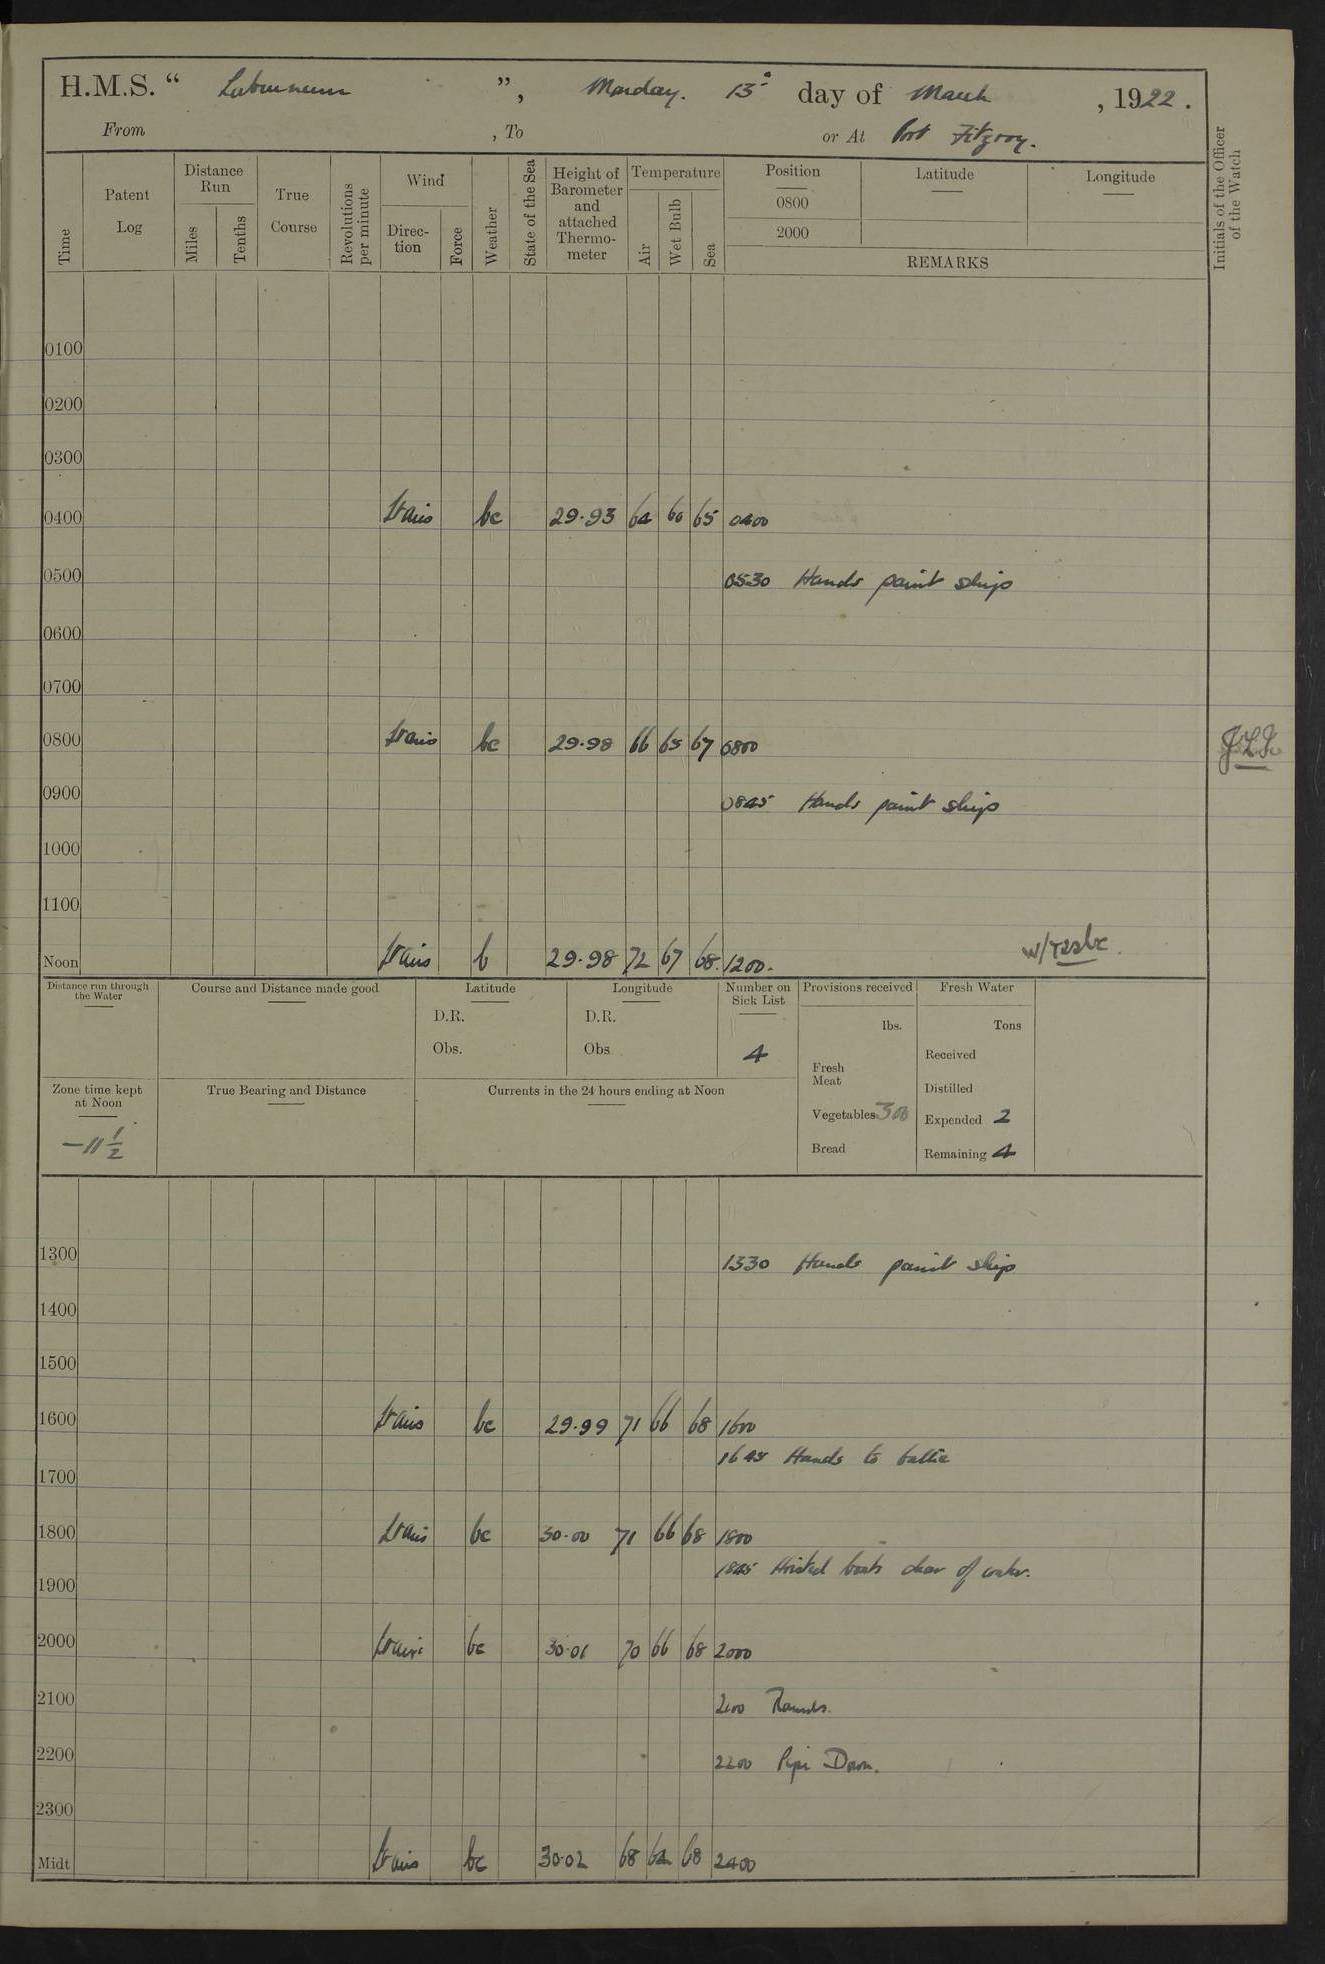 H.M.S. “ Laburnum ”, Monday. 13th day of March , 1922.
From , To or At Port Fitzroy.
Time
Patent Log
Distance Run
Miles
Tenths
True Course
Revolutions per minute
Wind
Direction
Force
Weather
State of the Sea
Height of Barometer and attached Thermometer
Temperature
Air
Wet Bulb
Sea
Position
0800
2000
Latitude
Longitude
REMARKS
Initials of the Officer of the Watch
0100
0200
0300
0400 Lt airs bc 29.93 64 60 65 0400
0500 0530 Hands paint ship
0600
0700
0800 Lt airs bc 29.98 66 65 67 0800
0900 0845 Hands paint ship
1000
1100
Noon Lt airs b 29.98 72 67 68 1200.
Distance run through the Water
Course and Distance made good
Latitude
D.R.
Obs.
Longitude
D.R.
Obs.
Number on Sick List
4
Provisions received
lbs.
Fresh Meat
Vegetables 300
Bread
Fresh Water
Tons
Received
Distilled
Expended 2
Remaining 4
Zone time kept at Noon
– 11 1/2
True Bearing and Distance
Currents in the 24 hours ending at Noon
1300 1330 Hands paint ship
1400
1500
1600 Lt airs bc 29.99 71 66 68 1600
1645 Hands to bathe
1700
1800 Lt airs bc 30.00 71 66 68 1800
1845 Hoisted boats clear of water.
1900
2000 Lt airs bc 30.01 70 66 68 2000
2100 2100 Rounds.
2200 2200 Pipe Down.
2300
Midt Lt airs bc 30.02 68 64 68 2400